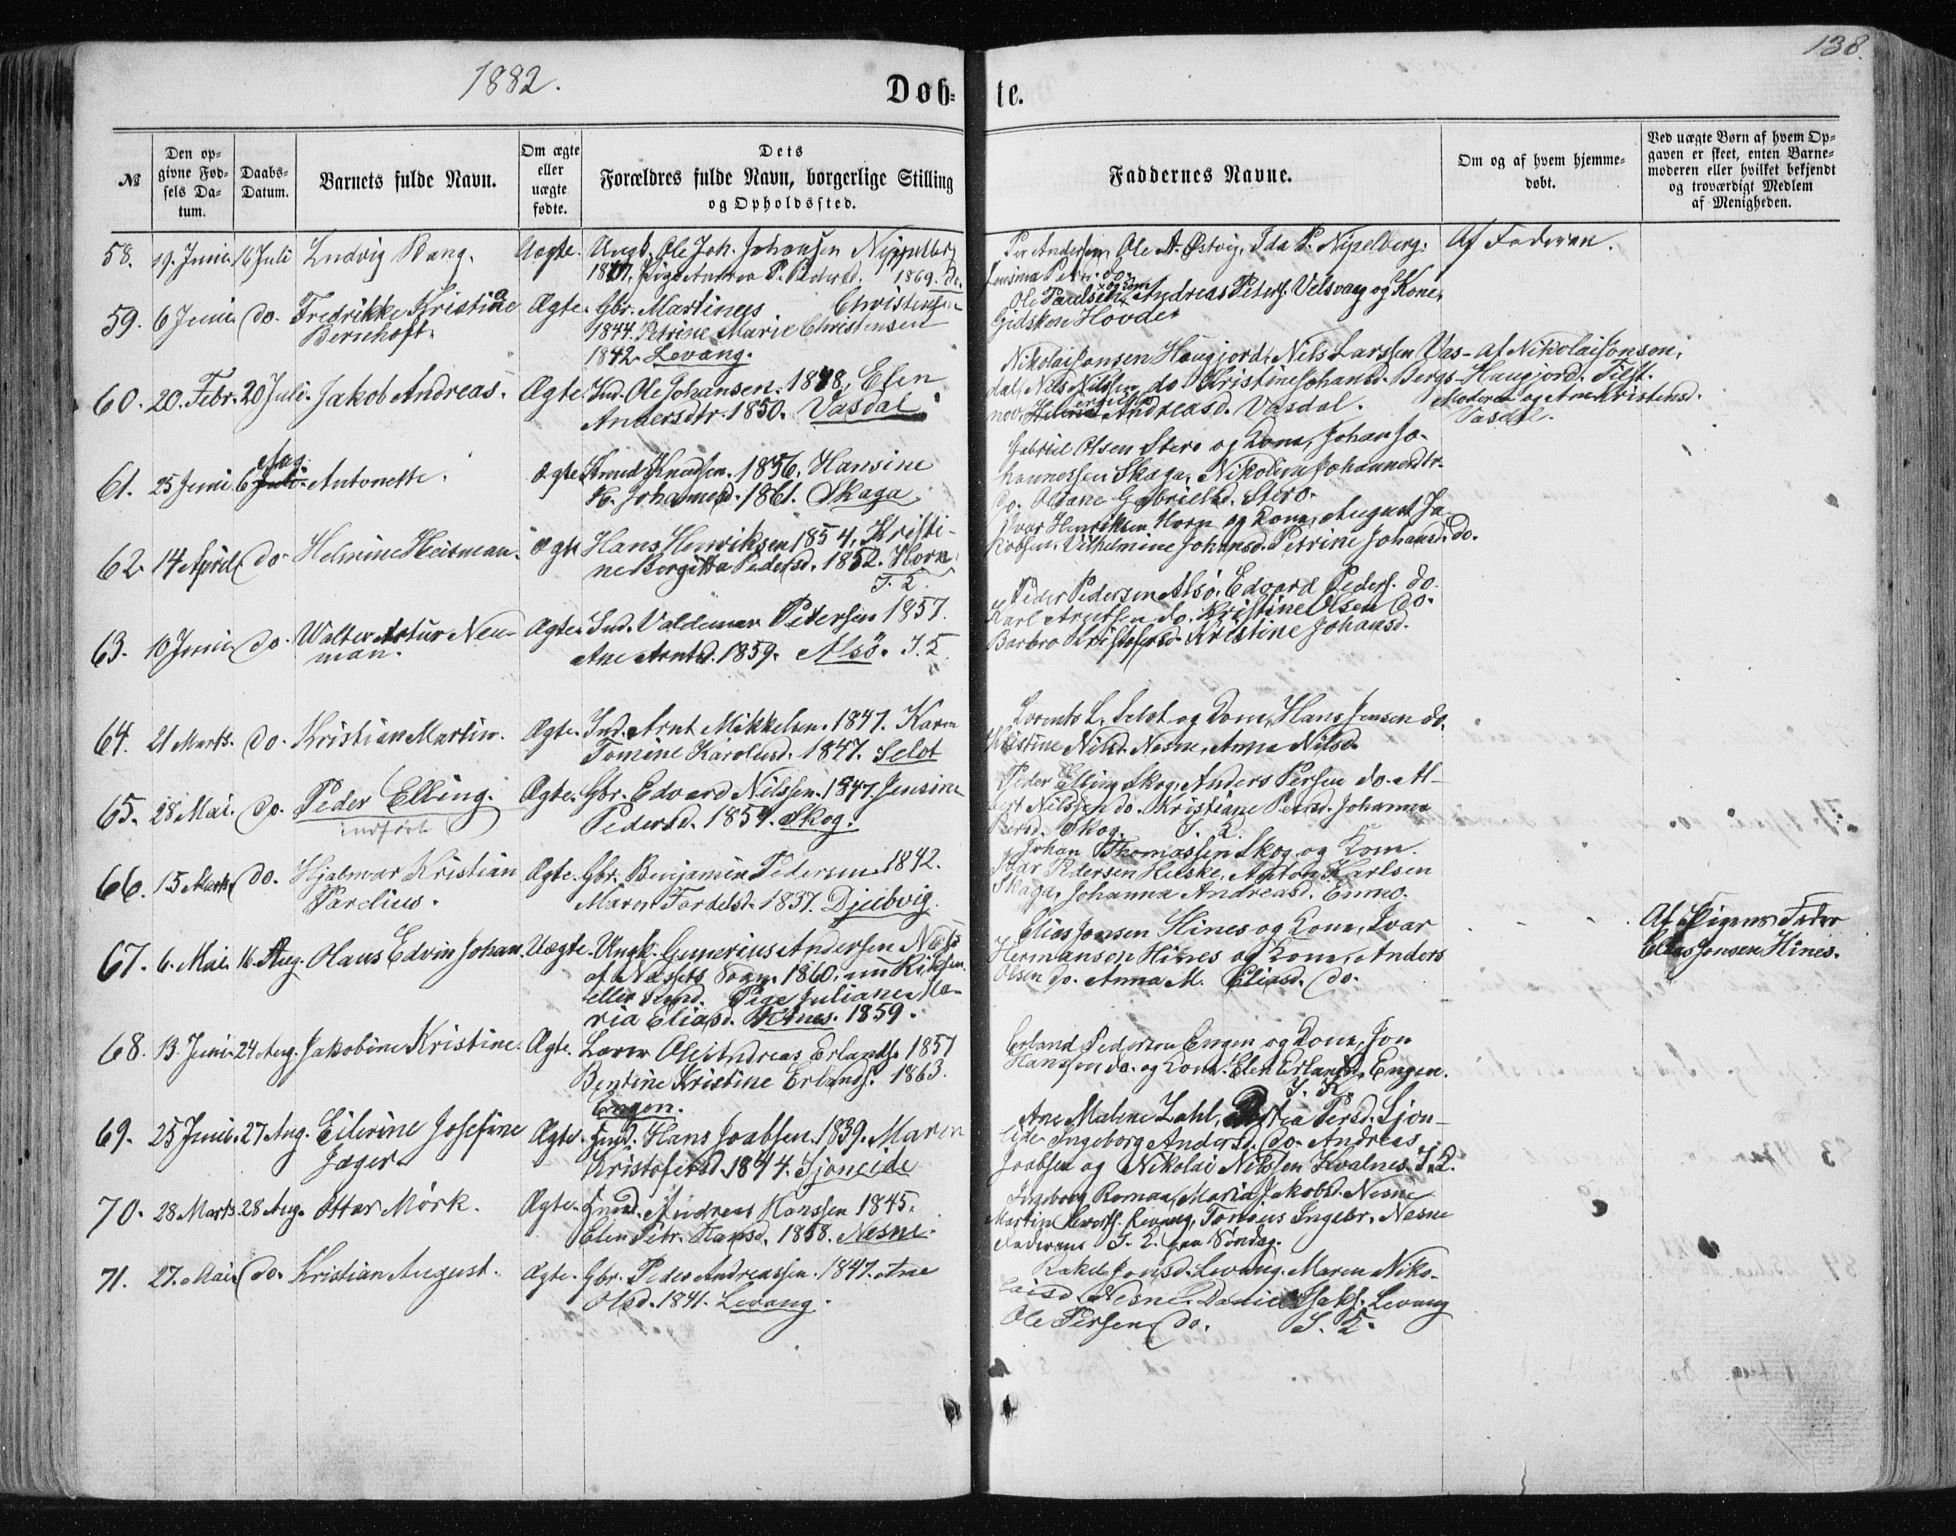 1882.
138.
Døb-
te.
№
Den op-
givne Fød-
sels Da-
tum.
Daabs-
Datum.
Barnets fulde Navn.
Om ægte
eller
uægte
fødte.
Dets
Forældres fulde Navn, borgerlige Stilling
og Opholdssted.
Faddernes Navne.
Om og af hvem hjemme-
døbt.
Ved uægte Børn af hvem Op-
gaven er skeet, enten Barne-
moderen eller hvilket bekjendt
og troværdigt Medlem
af Menigheden.
58. 19 Juni 16 Juli Ludvig Bang. Uægte. Ungk. Ole Joh. Johansen Nippelberg
Pige P. Pedersd. 1869. do.
Per Andersen, Ole A. Østvig, Ida P. Nipelberg.
do.
Af Faderen.
59. 6 Juni do. Fredrikke Kristine
Bernhoft. Ægte. Gbr. Martines Christensen
1844. Petrine Marie Christensen
1842. Levang.
Ole Paulsen Andreas Peters. Velsvaag og Kone,
Gidsken Hovde.
60. 20. Febr. 20 Juli. Jakob Andreas. Ægte. Ind. Ole Johansen. 1848, Elen
Andersdtr. 1850. Vasdal
Nikolai Jonsen Haugjord, Nils Larssen Vas-
dal, Nils Nilssen do Kristine Johansd. Bergs-
nov, Andreasd. Vasdal.
Af Nikolai Jonsen,
Haugjord. Tilst.
Moderen og Ane Kristensd.
Vasdal.
61. 25 Juni 6 Aug. Antonette. Ægte. Knud Knudsen. 1856, Hansine
K. Johannesd. 1861. Skaga.
Gabriel Olsen Stero og Kona, Johan Jo-
hannessen Skaga, Nikoline Johannesdtr.
do. Oldane Gabrielsd. Stero.
62. 14 April do. Helmine Heitman. Ægte Hans Henriksen 1854, Kristi-
ne Birgitta Pedersd. 1852. Horn
I. K.
Ivar Henriksen Horn og Kona, August Ja-
kobsen, Vilhelmine Johansd. Petrine Johansd. do.
63. 10 Juni do. Walter Artur Neu-
man. Ægte. Ind. Valdemar Petersen 1857.
Ane Arntsd. 1859. Alsö. I. K.
Peder Pedersen Alsö, Edvard Peders. do.
Karl Arntsen do. Kristine Olsen do.
Barbro Kristofersd. Kristine Johansd.
64. 21 Marts. do. Kristian Martin. Ægte. Ind. Arnt Mikkelsen. 1847. Karen
Tomine Karolusd. 1847. Selot
Lorents L. Selot og Kona, Hans Jensen do.
Kristine Nilsd. Nesne, Anna Nilsd.
65. 28 Mai. do. Peder Elling.
indført Ægte. Gbr. Edvard Nilssen. 1847. Jensine
Pedersd. 1854. Skog.
Peder Elling Skog, Anders Persen do. Al-
bert Nilssen do. Kristiane Persd. Johanna
Persd. Skog. I. K.
66. 15 Marts do. Hjalmar Kristian
Parelius. Ægte. Gbr. Benjamin Pedersen 1842.
Maren Tordelsd. 1837. Djubvig.
Johan Thomassen Skog og Kona.
Ivar Pedersen Helske, Anton Karlsen
Skaga, Johanna Andreasd. Enmo.
67. 6. Mai. 16. Aug. Olaus Edvin Johan. Uægte. Ungk. Gunerius Andersen Næss
af Næssets Sogn. 1860, nu
eller Sund. Pige Juliane Ma-
ria Eliasd. Hines. 1859.
Elias Jonsen Hines og Kona, Ivar
Hermansen Hines og Kona, Anders
Olsen do. Anna M. Eliasd. do.
Af Pigens Fader
Elias Jonsen Hines.
68. 13. Juni. 24 Aug. Jakobine Kristine. Ægte. Lærer Ole Andreas Erlands. 1857
Bentine Kristine Erlands. 1863.
Engen.
Erland Pedersen Engen og Kona, Jon
Hanssen do. og Kona. Elen Erlandsd. Engen.
I. K.
69. 25 Juni. 27 Aug. Eilerine Josefine
Jæger Ægte. Ind. Hans Joabsen. 1839. Maren
Kristofersd. 1844. Sjoneide
Ane Malene Zahl, Persd. Sjon-
eide Ingeborg Andersd. do. Andreas
Joabsen og Nikolai Nilssen Kvalnes. I. K.
70. 28 Marts 28 Aug. Ottar Mörk. Ægte. Ind. Andreas Hanssen 1845.
Elen Petr. Hansd. 1858. Nesne.
Ingeborg Romaa, Maria Jakobsd. Nesne
Martin Levang, Tomas Ingebr. Nesne
Faderens I. K. paa Søndag.
71. 27. Mai do. Kristian August. Ægte. Gbr. Peder Andreassen. 1847. Ane
Olsd. 1841. Levang.
Rakel Jonsd. Levang. Maren Niko-
laisd. Nesne. Daniel Isaks. Levang
Ole Persen do. I. K.